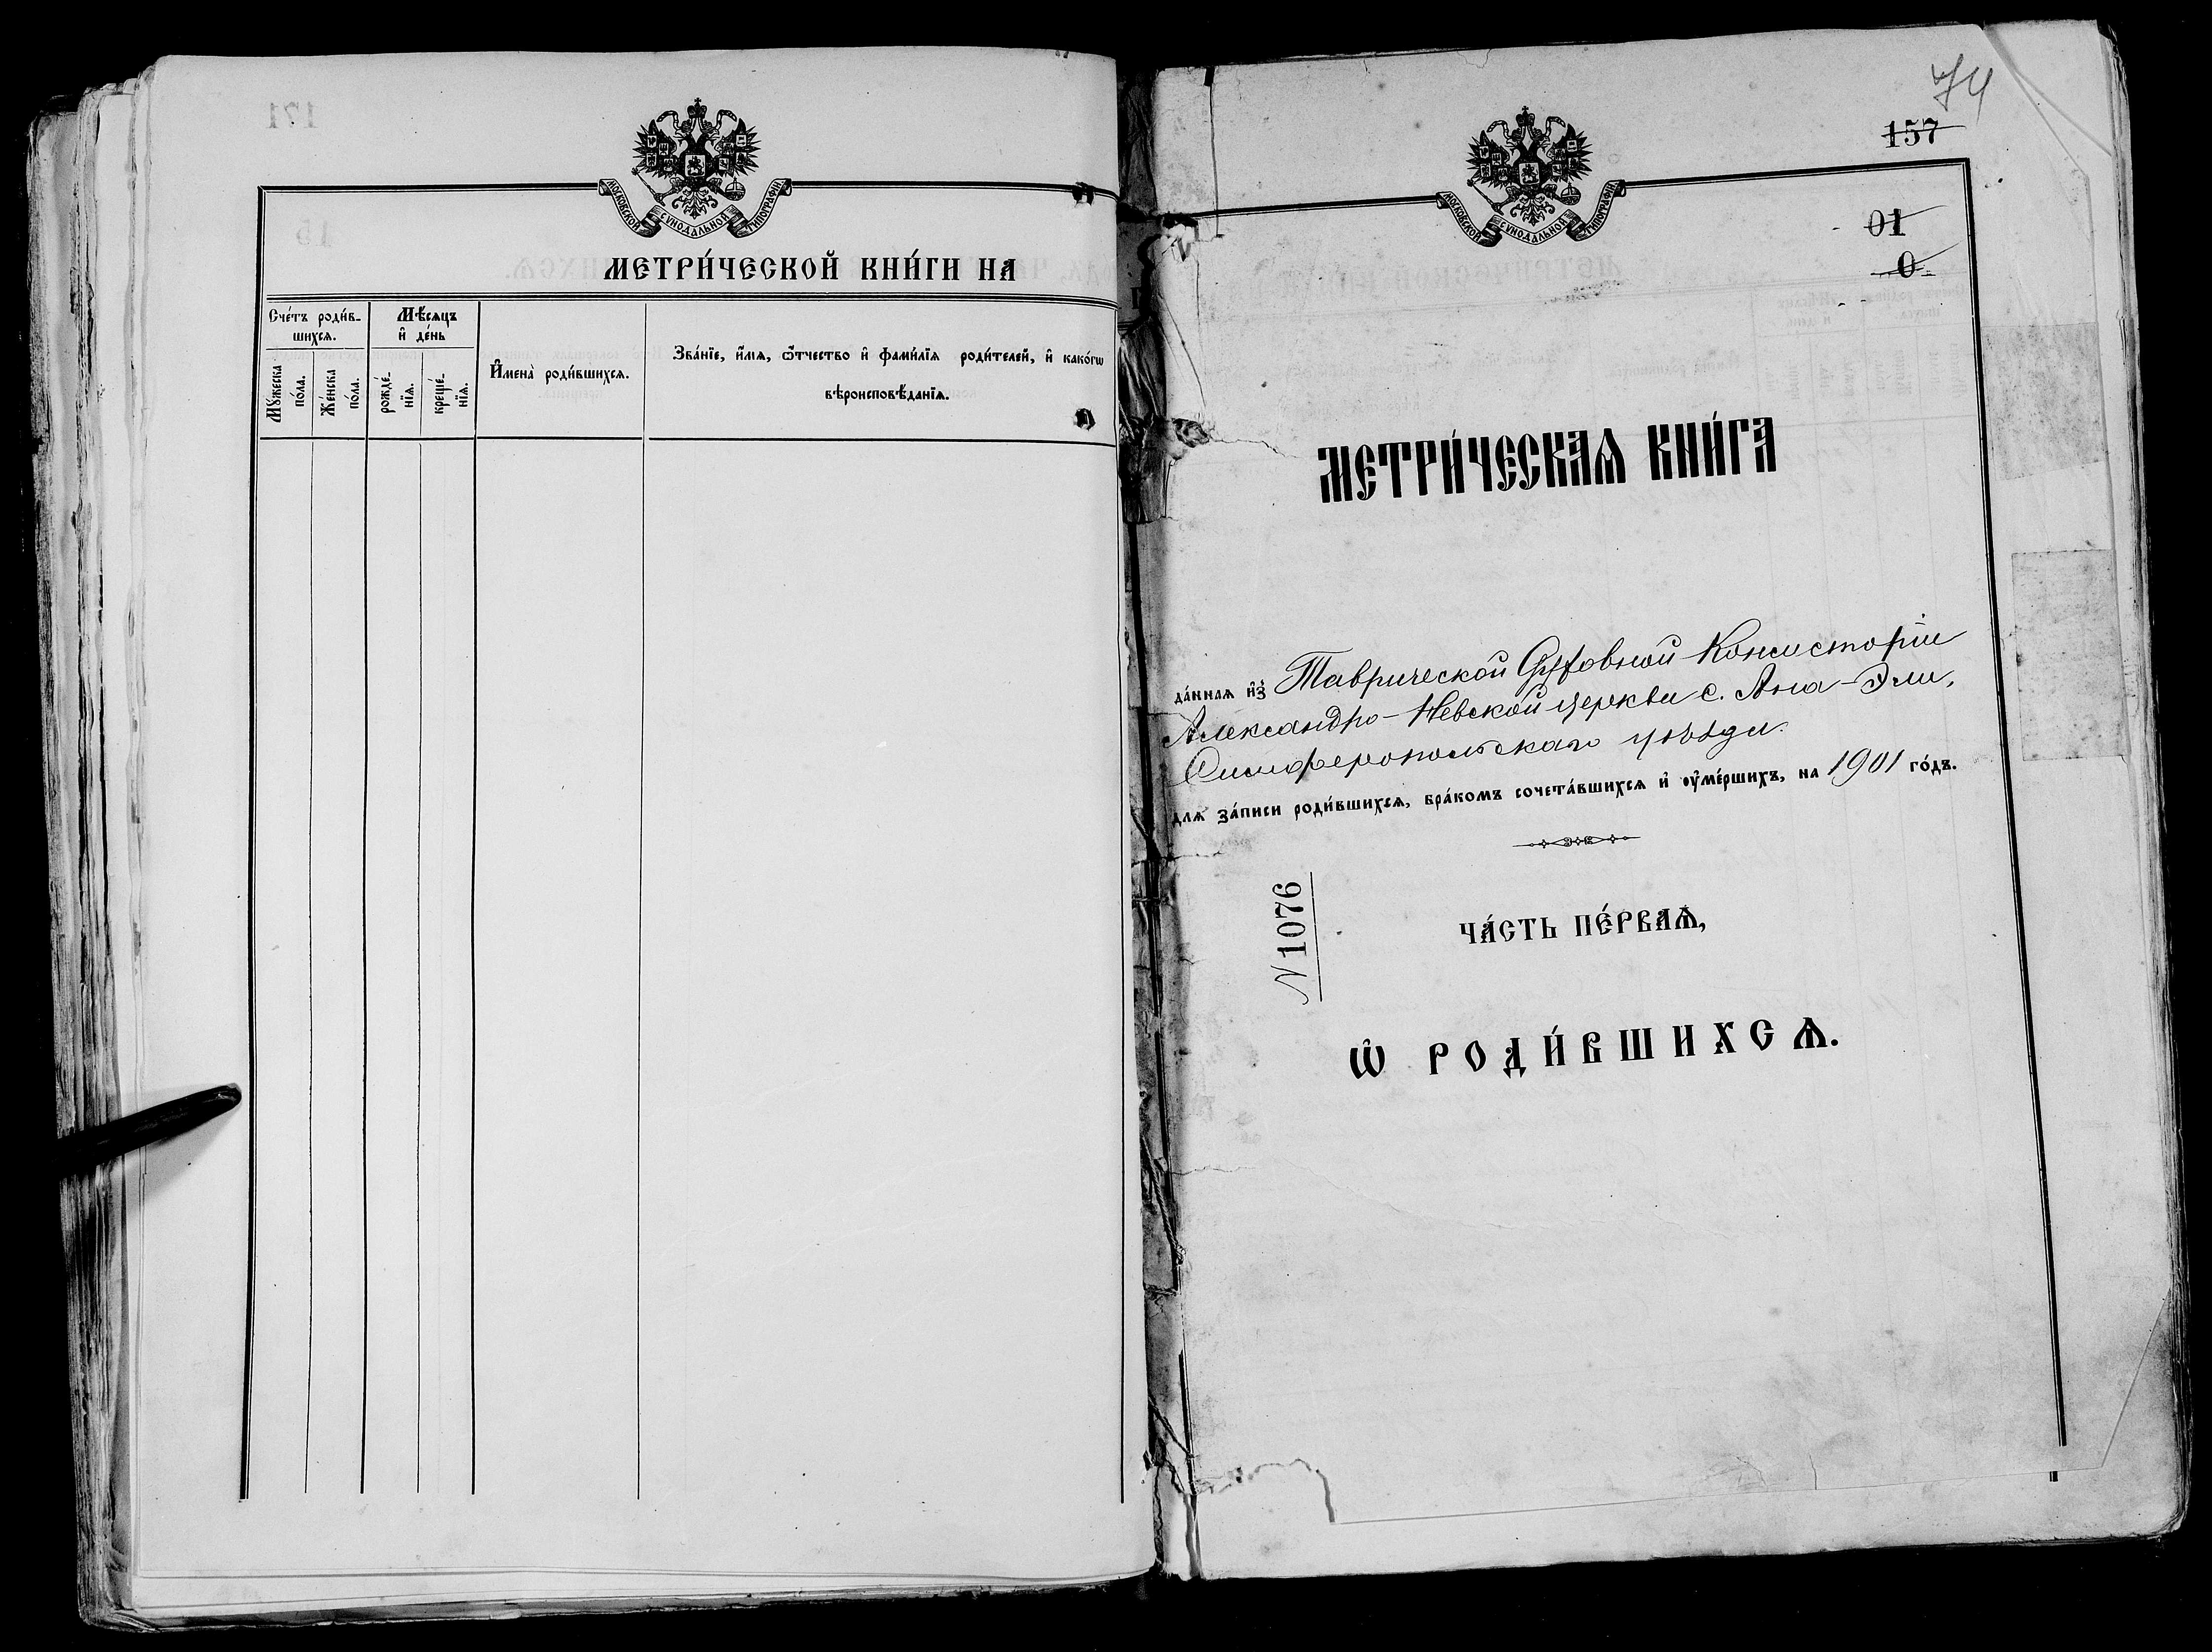 МОСКОВСКОЙ СѴНОДАЛЬНОЙ ТИПОГРАФІИ
МЕТРИ́ЧЕСКОЙ КНИ́ГИ НА
Сче́тъ роди́в-
шихсѧ.
Мꙋ́жеска
по́ла.
Же́нска
по́ла.
Мѣ́сѧцъ
и҆ де́нь
рожде́-
нїѧ.
креще́-
нїѧ.
И҆мена̀ роди́вшихсѧ.
Зва́нїе, и҆́мѧ, ѻ҆́тчество и҆ фами́лїѧ роди́телей, и҆ како́гѡ
вѣроисповѣ́данїѧ.
74
157
МОСКОВСКОЙ СѴНОДАЛЬНОЙ ТИПОГРАФІИ
01
0
МЕТРИ́ЧЕСКАѦ КНИ́ГА
да́ннаѧ и҆з̾ Таврической Духовной Консисторіи
Александро-Невской церкви с. Ана-Эли,
Симферопольскаго уѣзда.
длѧ за́писи роди́вшихсѧ, бра́комъ сочета́вшихсѧ и҆ ᲂу҆ме́ршихъ, на 1901 го́дъ.
N 1076
ЧА́СТЬ ПЕ́РВАѦ,
Ѡ҆ РОДИ́ВШИХСѦ.